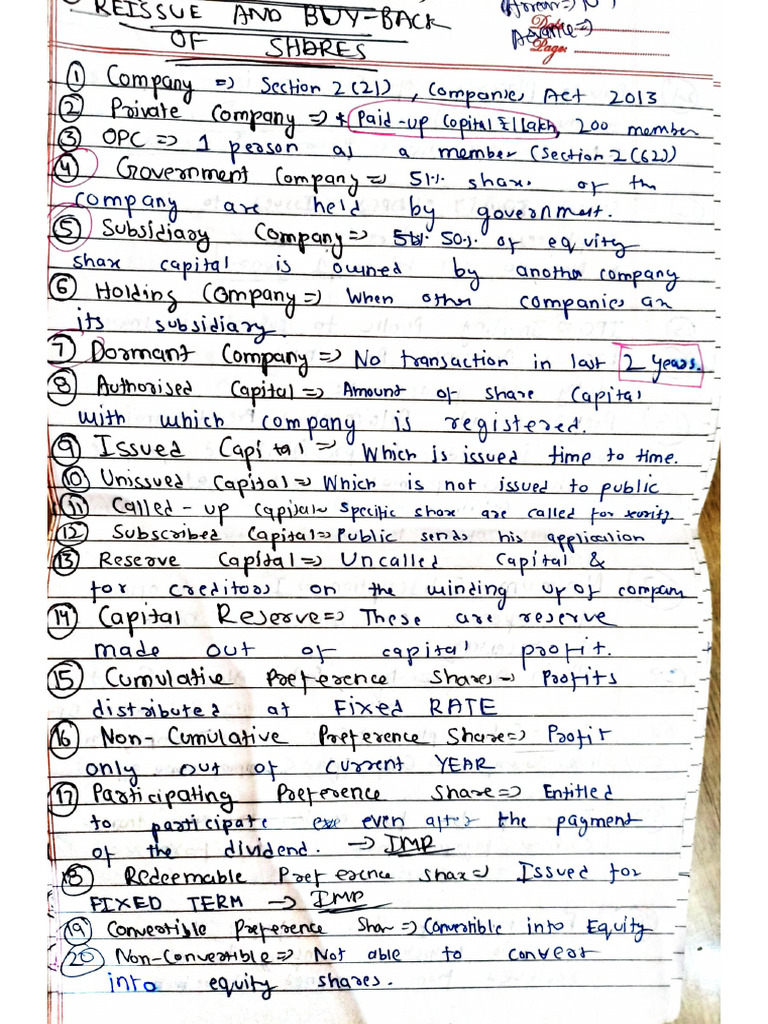 REISSUE AND BUY-BACK
OF SHARES
Date:
Page:
Advance=>
① Company => Section 2(21), Companies Act 2013
② Private Company => Paid-up Capital ₹1 Lakh, 200 member
③ OPC => 1 person as a member (Section 2(62))
④ Government Company => 51% share of the
company are held by government.
⑤ Subsidiary Company => 50% of equity
share capital is owned by another company
⑥ Holding Company => When other companies are
its subsidiary.
⑦ Dormant Company => No transaction in last 2 years.
⑧ Authorised Capital => Amount of share Capital
with which company is registered.
⑨ Issued Capital => Which is issued time to time.
⑩ Unissued Capital => Which is not issued to public
⑪ Called-up Capital Specific share are called for
⑫ Subscribed Capital => Public sends his application
⑬ Reserve Capital => Uncalled Capital &
for creditors on the winding up of company
⑭ Capital Reserve => These are reserve
made out of capital profit.
⑮ Cumulative Preference Shares Profits
distributed at FIXED RATE
⑯ Non-Cumulative Preference Share => Profit
only out of current YEAR
⑰ Participating Preference Share => Entitled
to participate even after the payment
of the dividend. -> IMP
⑱ Redeemable Preference share => Issued for
FIXED TERM -> IMP
⑲ Convertible Preference Share => Convertible into Equity
⑳ Non-Convertible => Not able to convert
into equity shares.